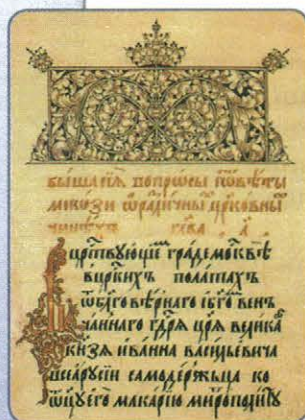 быша сїѧ попросы иѿвѣты
мнози ѿразличны црковны
чинѣхъ гл҃ва а҃
црⷭтвующїе градемосквѣ
вцрⷭкихъ полатахъ
ѿблговѣрнаго ібговѣн
чаннаго гдрѧ црѧ велика
кнзѧ иванна василъевича
всеарусїи самодержьца ко
ѿцуего макарїю митрополиту